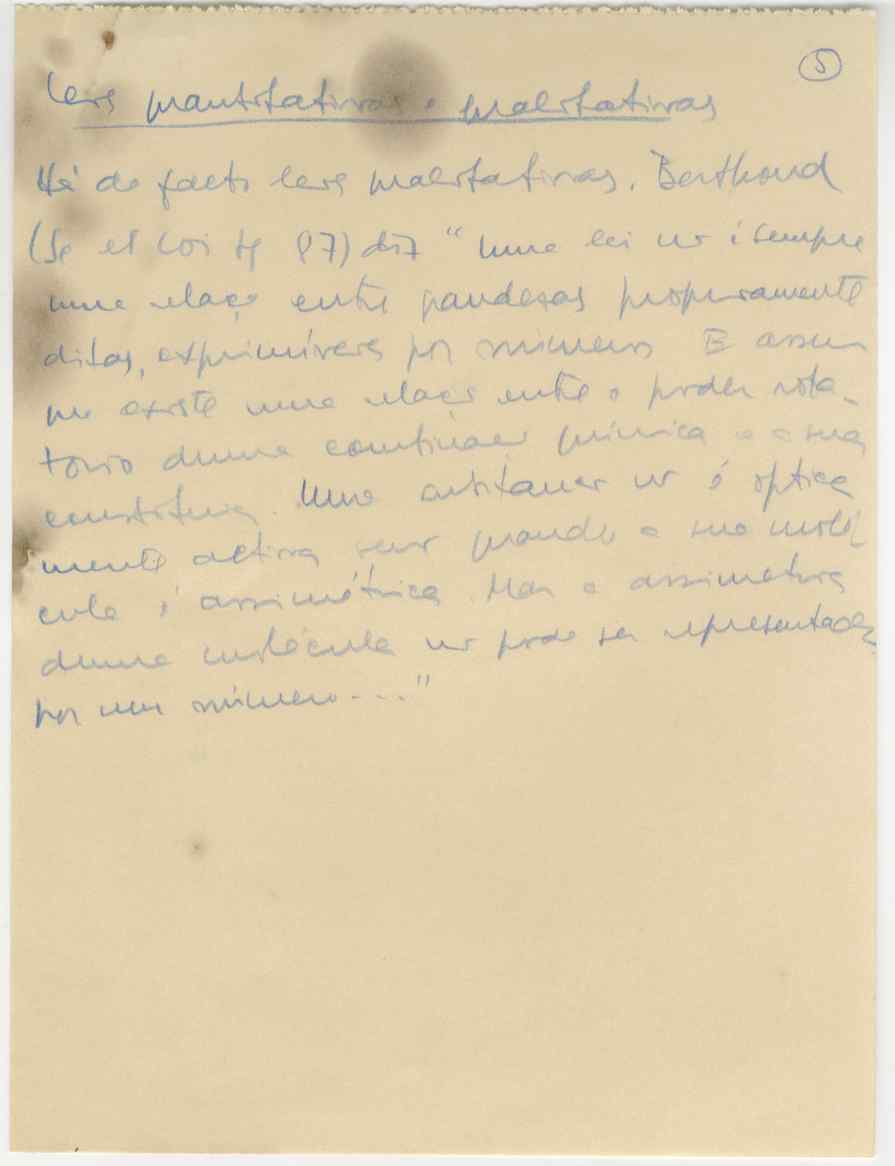 5
Leis quantitativas e qualitativas
Há de facto leis qualitativas. Berthoud
(Sc et Loi pg 87) diz "Uma lei não é sempre
uma relação entre grandezas propriamente
ditas, exprimíveis por números E assim
que existe uma relação entre o poder rota-
tório duma combinação química e a sua
constituição. Uma substância não é optica
mente activa senão quando a sua molé
cula é assimétrica. Mas a assimetria
duma molécula não pode ser representada
por um número...."